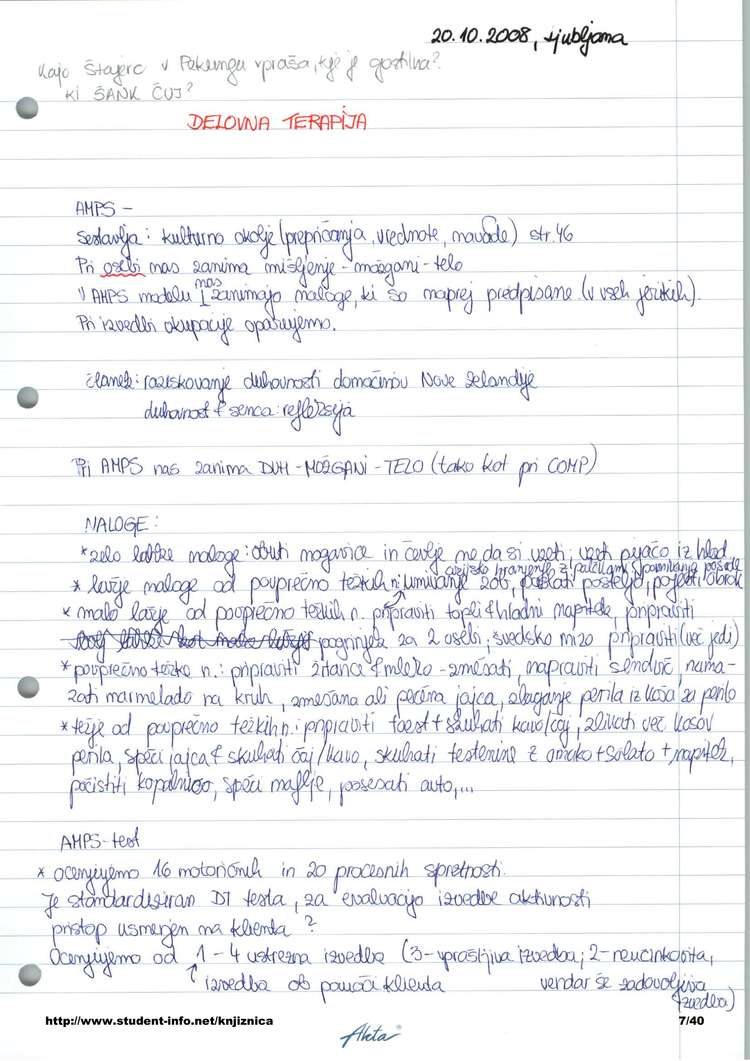 20.10.2008, Ljubljana
Kajo Štajerc v Pekingu vpraša, kje je gostilna?
KI ŠANK ČUJ?
DELOVNA TERAPIJA
AMPS -
Sestavlja: kulturno okolje (prepričanja, vrednote, navade) str. 46
Pri osebi nas zanima mišljenje - možgani - telo
V AMPS modelu nas zanimajo naloge, ki so naprej predpisane (v vseh jezikih).
Pri izvedbi okupacije opazujemo.
članek: raziskovanje duhovnosti domačinov Nove Zelandije
duhovnost & senca: refleksija
Pri AMPS nas zanima DUH - MOŽGANI - TELO (tako kot pri COMP)
NALOGE:
* zelo lahke naloge: obuti nogavice in čevlje ne da si vzeti, vzeti pijačo iz hlad.
azijsko hranjenje z palčkami, pomivanje posode
* lažje naloge od povprečno težkih n: umivanje zob, postlati posteljo, pojesti obrok
* malo lažje od povprečno težkih n. pripraviti topli & hladni napitek, pripraviti
pogrinjek za 2 osebi, švedsko mizo pripraviti (več jedi)
* povprečno težke n.: pripraviti žitarice & mleko - zmešati, napraviti sendvič, nama-
zati marmelado na kruh, zmešana ali pečena jajca, zlaganje perila iz koša za perilo
* težje od povprečno težkih n.: pripraviti toast + skuhati kavo/čaj, zlikati več kosov
perila, speči jajca & skuhati čaj/kavo, skuhati testenine z omako + solato + napitek,
počistiti kopalnico, speči mafije, posesati auto,...
AMPS-test
* ocenjujemo 16 motoričnih in 20 procesnih spretnosti.
Je standardiziran DT testa, za evalvacijo izvedbe aktivnosti
pristop usmerjen na klienta ?
Ocenjujemo od 1-4 ustrezna izvedba (3-vprašljiva izvedba; 2-neučinkovita,
izvedba ob pomoči klienta vendar še zadovoljiva
izvedba)
http://www.student-info.net/knjiznica
7/40
Akta